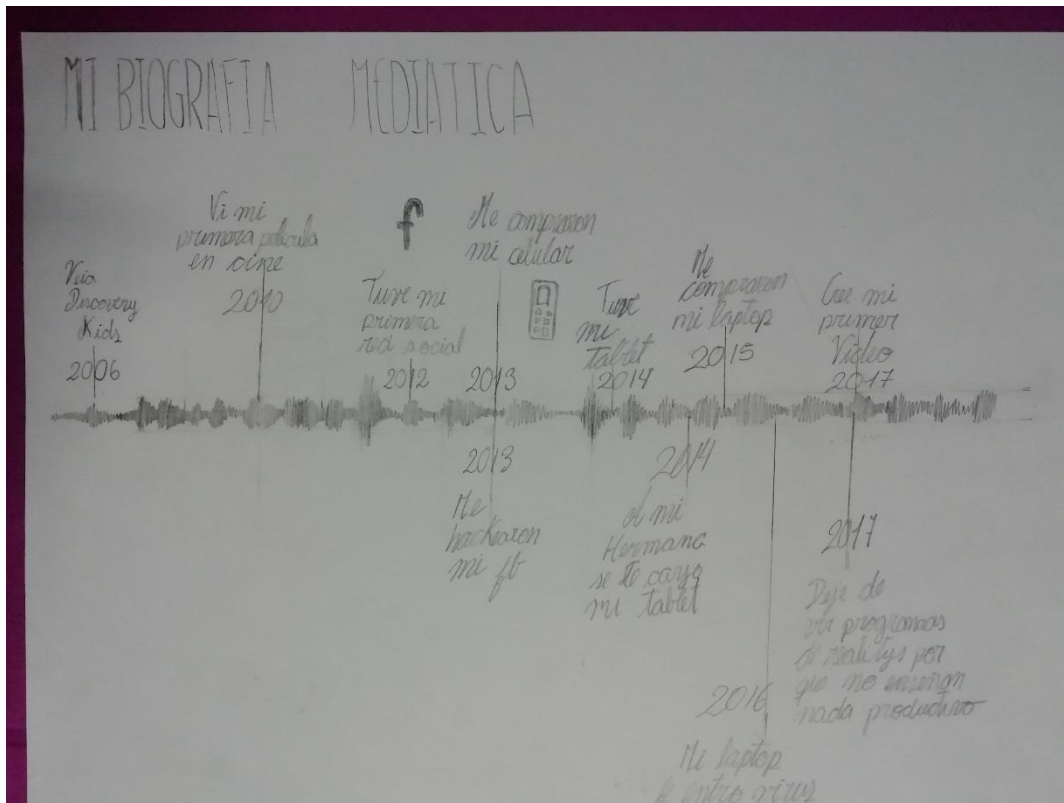 MI BIOGRAFIA MEDIATICA
Veia
Discovery
Kids
2006
Vi mi
primera pelicula
en cine
2010
f
Tuve mi
primera
red social
2012
Me compraron
mi celular
2013
Tuve
mi
tablet
2014
Me
compraron
mi laptop
2015
Cree mi
primer
Video
2017
2013
Me
hackearon
mi fb
2014
A mi
Hermano
se le cayo
mi tablet
2016
Mi laptop
le entro virus
2017
Deje de
ver programas
de realitys por
que no enseñan
nada productivo